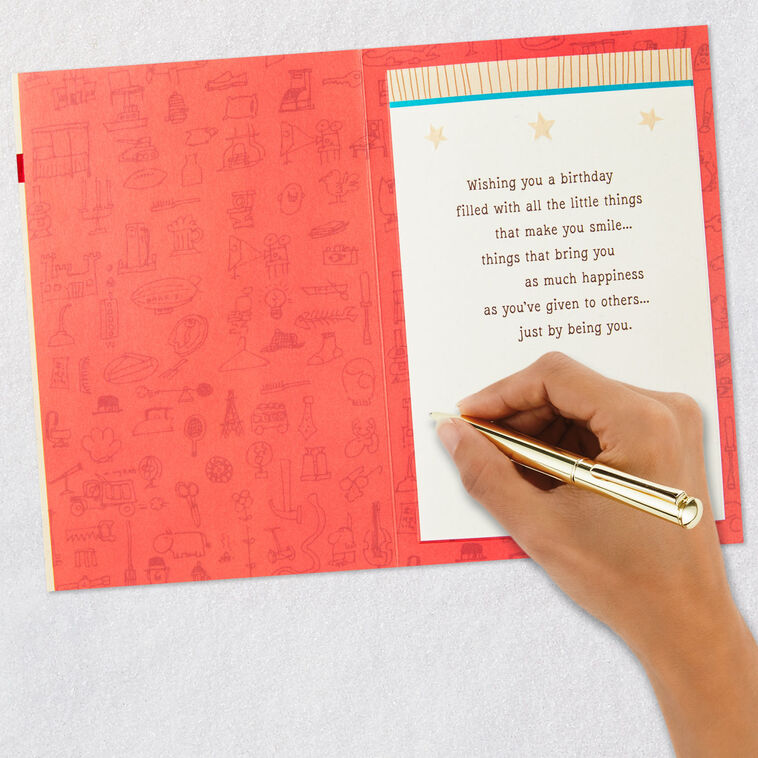 Wishing you a birthday
filled with all the little things
that make you smile...
things that bring you
as much happiness
as you've given to others...
just by being you.